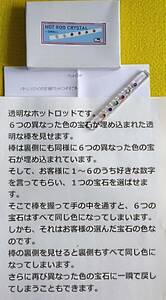 HOT ROD CRYSTAL
透明なホットロッドです。
6つの異なった色の宝石が埋め込まれた透
明な棒を見せます。
棒は裏側にも同様に6つの異なった色の宝
石が埋め込まれています。
そして、お客様に1～6のうち好きな数字
を言ってもらい、1つの宝石を選ばせま
す。
そこで棒を握って手の中を通すと、6つの
宝石はすべて同じ色になってしまいます。
しかも、それはお客様の選んだ宝石の色な
のです。
棒の裏側を見せると裏側もすべて同じ色に
なってしまいます。
さらに再び異なった色の宝石に一瞬で戻し
てしまうこともできます。